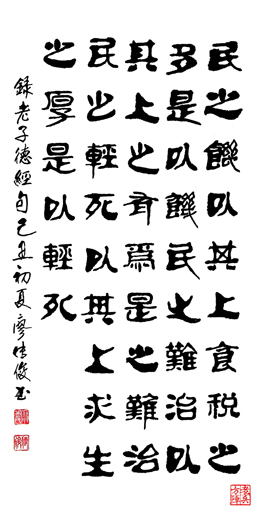 民之饑以其上食税之
多是以饑民之難治以
其上之有爲是之難治
民之輕死以其上求生
之厚是以輕死
錄老子德經句己丑初夏廖俊书